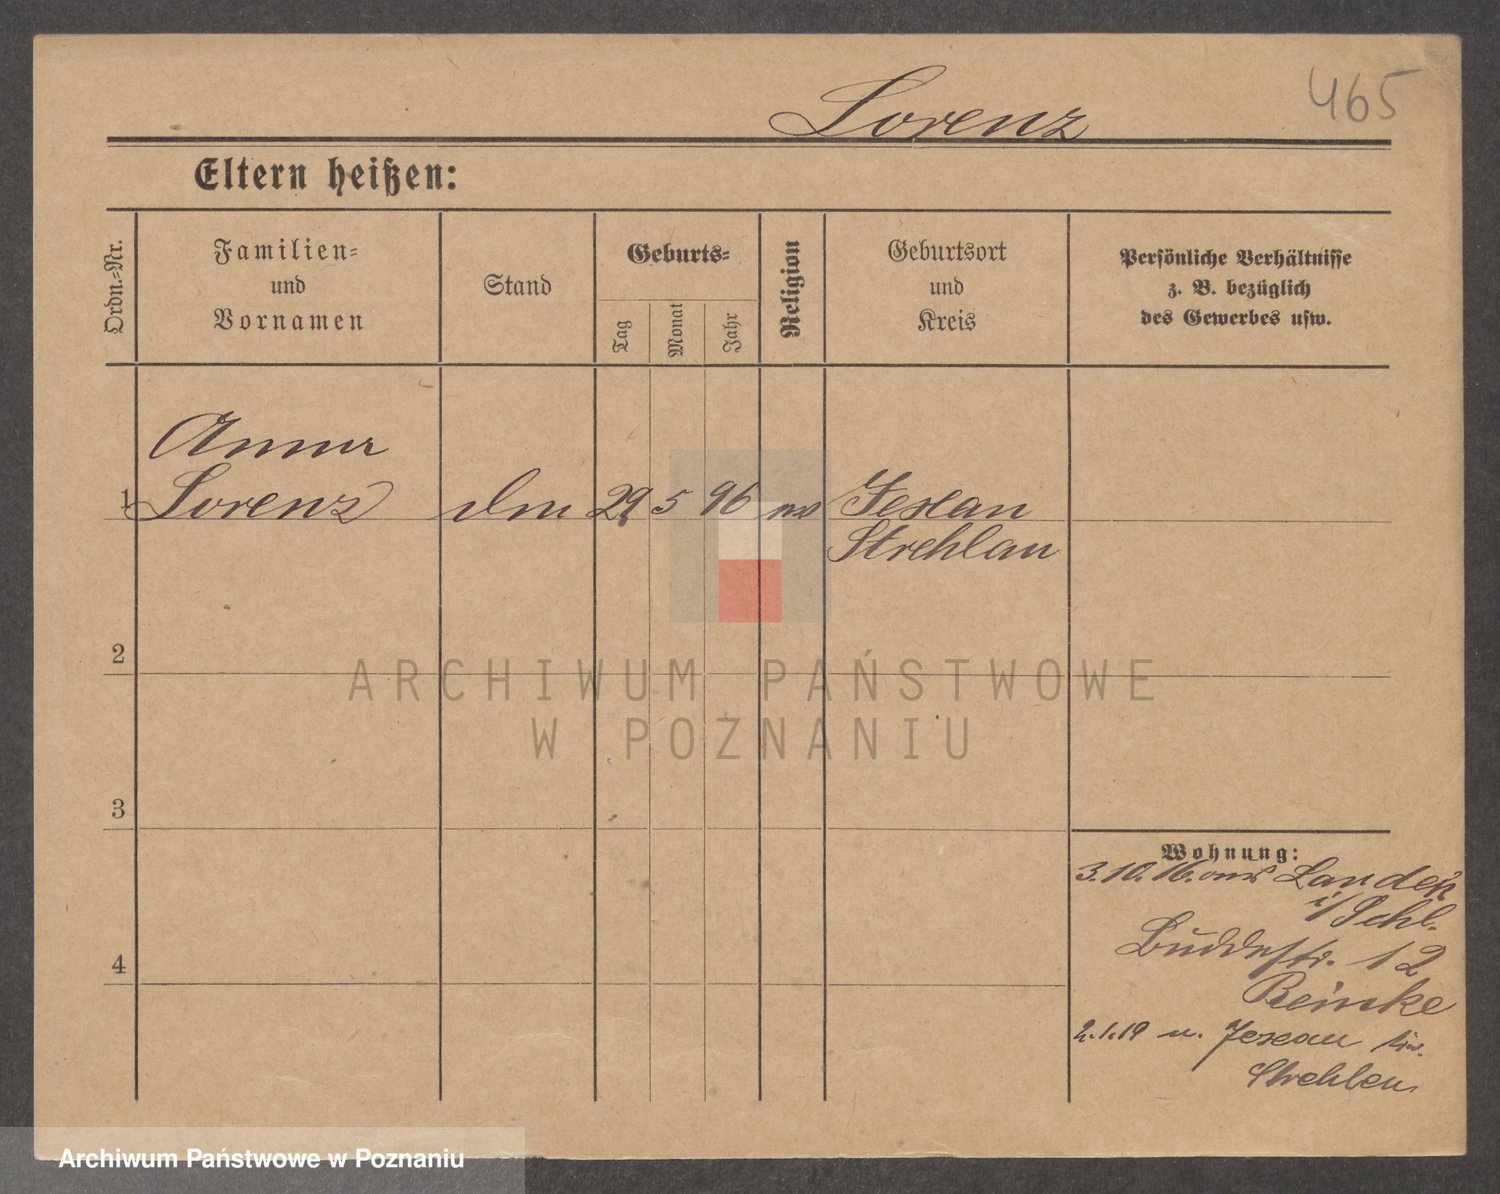 465
Lorenz
Eltern heißen:
Ordn.-Nr.
Familien-
und
Vornamen
Stand
Geburts-
Tag
Monat
Jahr
Religion
Geburtsort
und
Kreis
Persönliche Verhältnisse
z. B. bezüglich
des Gewerbes usw.
Anna
1 Lorenz 29 5 96 Jexau
Strehlau
2
3
4
Wohnung:
3.10.16. aus Landek
i/Schl.
Buddestr. 12
Reinke
2.1.19 n. Jexau
Strehlen
ARCHIWUM PAŃSTWOWE
W POZNANIU
Archiwum Państwowe w Poznaniu